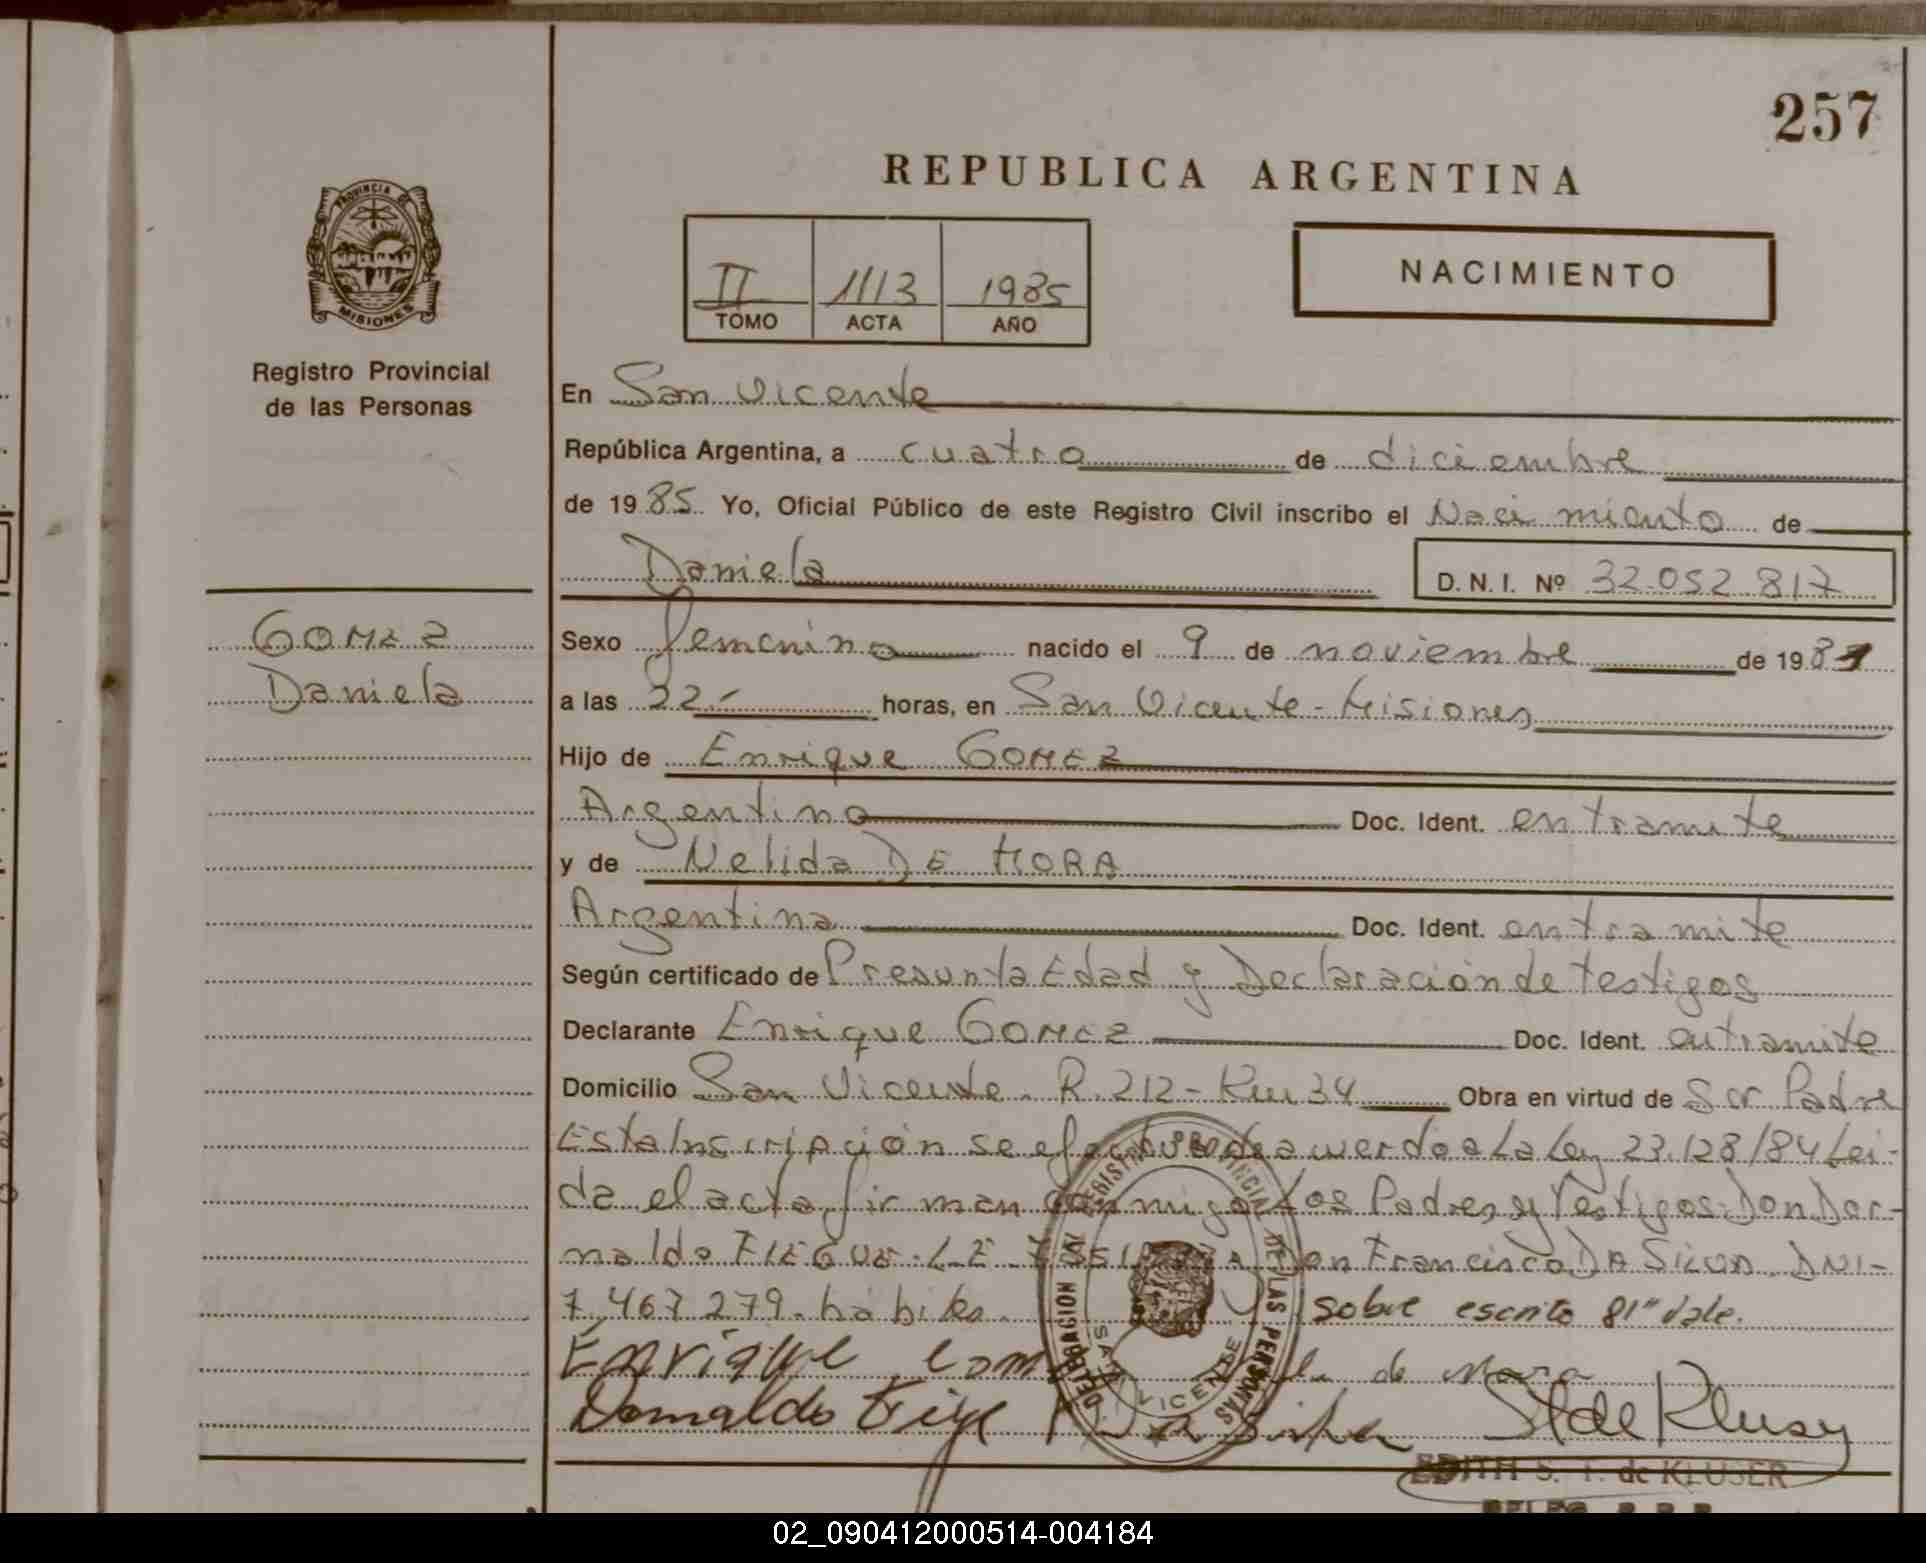 257
REPUBLICA ARGENTINA
PROVINCIA DE
MISIONES
Registro Provincial
de las Personas
II 1113 1985
TOMO ACTA AÑO
NACIMIENTO
En San Vicente
República Argentina, a cuatro de diciembre
de 1985 Yo, Oficial Público de este Registro Civil inscribo el Nacimiento de
Daniela D.N.I. Nº 32.052.817
GOMEZ
Daniela
Sexo femenino nacido el 9 de noviembre de 1981
a las 22.- horas, en San Vicente - Misiones
Hijo de Enrique GOMEZ
Argentino Doc. Ident. entramite
y de Nelida DE MORA
Argentina Doc. Ident. entramite
Según certificado de Presunta Edad y Declaración de testigos
Declarante Enrique GOMEZ Doc. Ident. entramite
Domicilio San Vicente. R. 212 - Km 34 Obra en virtud de Ser Padre
Esta Inscripción se efectua de acuerdo a La Ley 23.128/84 Lei-
da el acta firman conmigo Los Padres y Testigos: Don Dor-
naldo L.E. Don Francisco DA SILVA. DNI-
7.467.279. hábiles. sobre escrito 81" Vale.
Enrique Gom de Mora
Da Silva St de Kluser
DELEGACION DEL REGISTRO PROVINCIAL DE LAS PERSONAS
SAN VICENTE
EDITH S. T. de KLUSER
02_090412000514-004184